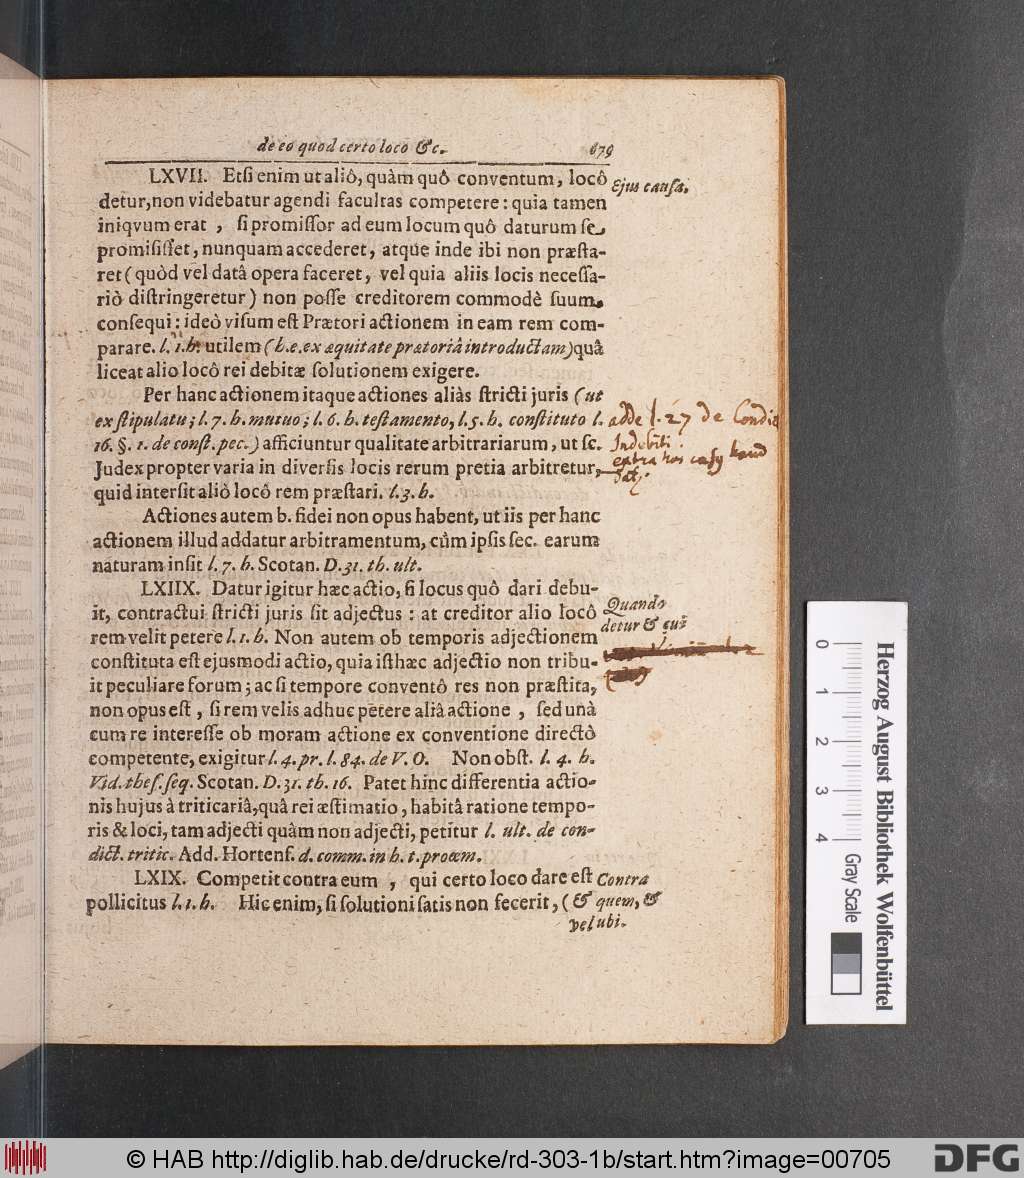 de eo quod certo loco &c. 679
LXVII. Etsi enim ut aliô, quàm quô conventum, locô
Ejus causa.
detur, non videbatur agendi facultas competere: quia tamen
iniqvum erat, si promissor ad eum locum quô daturum se
promisisset, nunquam accederet, atque inde ibi non præsta-
ret (quòd vel datâ opera faceret, vel quia aliis locis necessa-
riò distringeretur) non posse creditorem commodè suum
consequi: ideò visum est Prætori actionem in eam rem com-
parare. l. 1. h. utilem (h. e. ex æquitate prætoriâ introductam) quâ
liceat alio locô rei debitæ solutionem exigere.
Per hanc actionem itaque actiones aliàs stricti juris (ut
ex stipulatu; l. 7. h. mutuo; l. 6. h. testamento, l. 5. h. constituto l.
adde l. 27 de Condic
16. §. 1. de const. pec.) afficiuntur qualitate arbitrariarum, ut sc.
Indebiti.
Judex propter varia in diversis locis rerum pretia arbitretur,
extra hos casus haud
quid intersit aliò locô rem præstari. l. 3. h.
Actiones autem b. fidei non opus habent, ut iis per hanc
actionem illud addatur arbitramentum, cûm ipsis sec. earum
naturam insit l. 7. h. Scotan. D. 31. th. ult.
LXIIX. Datur igitur hæc actio, si locus quô dari debu-
Quando
it, contractui stricti juris sit adjectus: at creditor alio locô
detur & cui?
rem velit petere l. 1. h. Non autem ob temporis adjectionem
constituta est ejusmodi actio, quia isthæc adjectio non tribu-
it peculiare forum; ac si tempore conventô res non præstita,
non opus est, si rem velis adhuc petere aliâ actione, sed unà
cum re interesse ob moram actione ex conventione directò
competente, exigitur l. 4. pr. l. 84. de V. O. Non obst. l. 4. h.
Vid. thes. seq. Scotan. D. 31. th. 16. Patet hinc differentia actio-
nis hujus à triticariâ, quâ rei æstimatio, habitâ ratione tempo-
ris & loci, tam adjecti quàm non adjecti, petitur l. ult. de con-
dict. tritic. Add. Hortens. d. comm. in h. t. proœm.
LXIX. Competit contra eum, qui certo loco dare est
Contra
pollicitus l. 1. h. Hic enim, si solutioni satis non fecerit, (&
quem, &
vel ubi.
Herzog August Bibliothek Wolfenbüttel
0 1 2 3 4
Gray Scale
© HAB http://diglib.hab.de/drucke/rd-303-1b/start.htm?image=00705
DFG